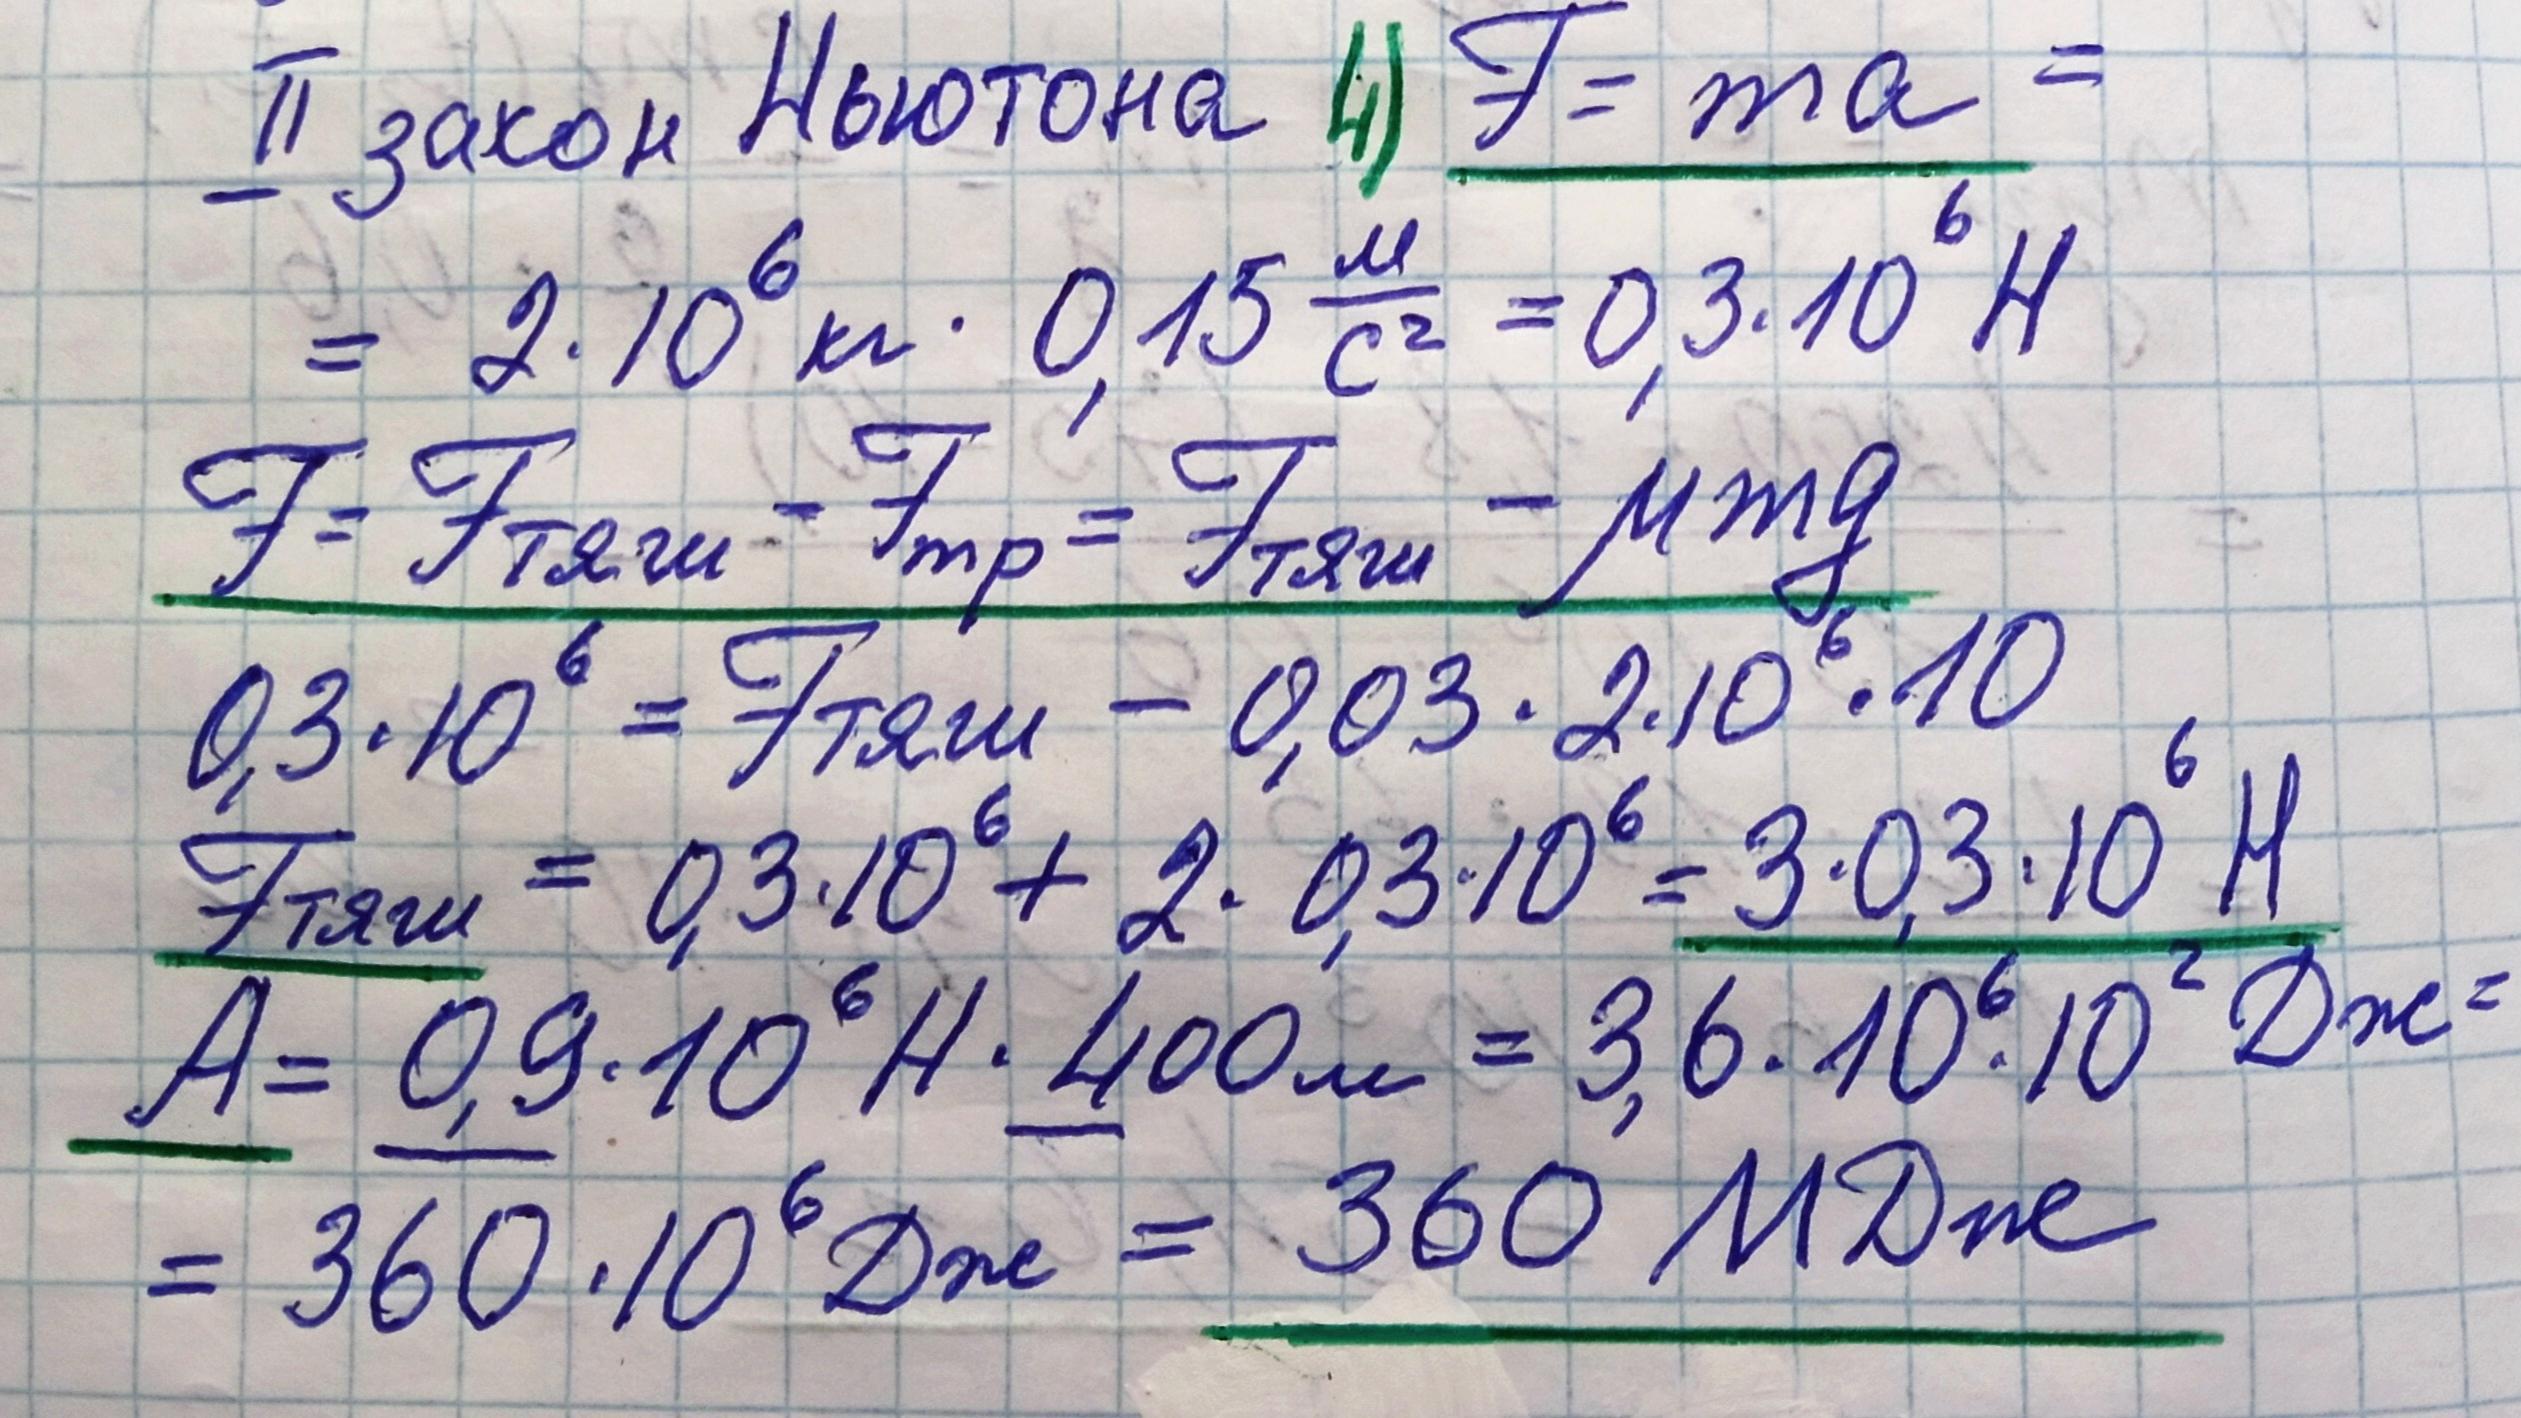 II закон Ньютона 4) F = ma =
= 2·10⁶ кг · 0,15 м/с² = 0,3·10⁶ Н
F = Fтяги - Fтр = Fтяги - μmg
0,3·10⁶ = Fтяги - 0,03·2·10⁶·10
Fтяги = 0,3·10⁶ + 2·0,3·10⁶ = 3·0,3·10⁶ Н
A = 0,9·10⁶ Н · 400 м = 3,6·10⁶·10² Дж =
= 360·10⁶ Дж = 360 МДж